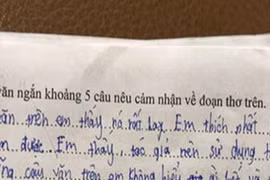 văn ngắn khoảng 5 câu nêu cảm nhận về đoạn thơ trên.
văn trên em thấy nó rất hay Em thích nhất
được Em thấy tác giả nên sử dụng t
câu văn trên em không hiểu